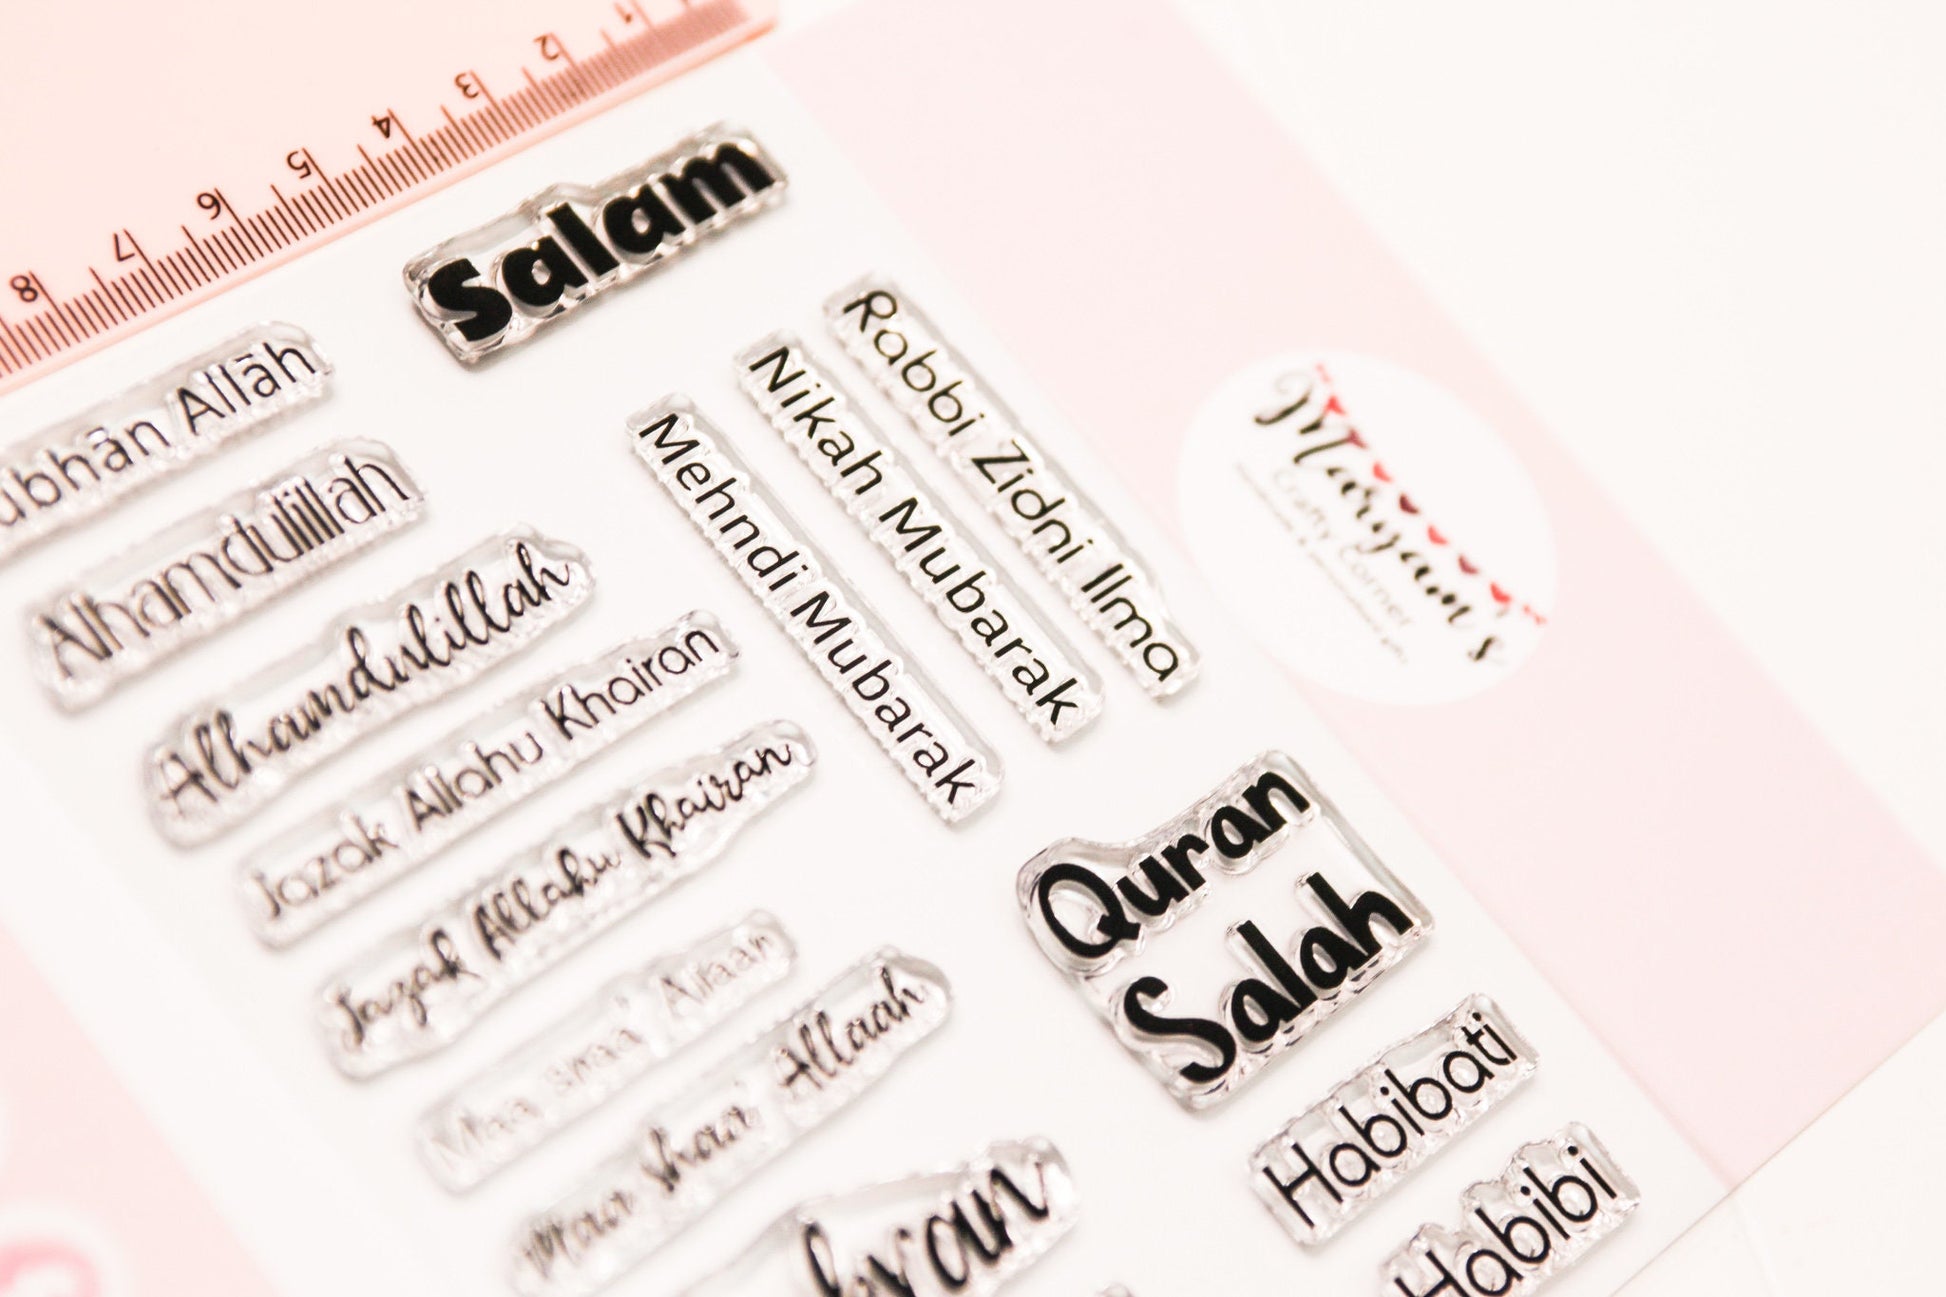 1
2
3
4
5
6
7
8
Salam
Subhān Allāh
Alhamdulillah
Alhamdulillah
Jazak Allahu Khairan
Jazak Allahu Khairan
Maa shaa' Allaah
Maa shaa' Allaah
Rabbi Zidni Ilma
Nikah Mubarak
Mehndi Mubarak
Quran
Salah
Habibati
Habibi
Maryam's
Crafty Corner